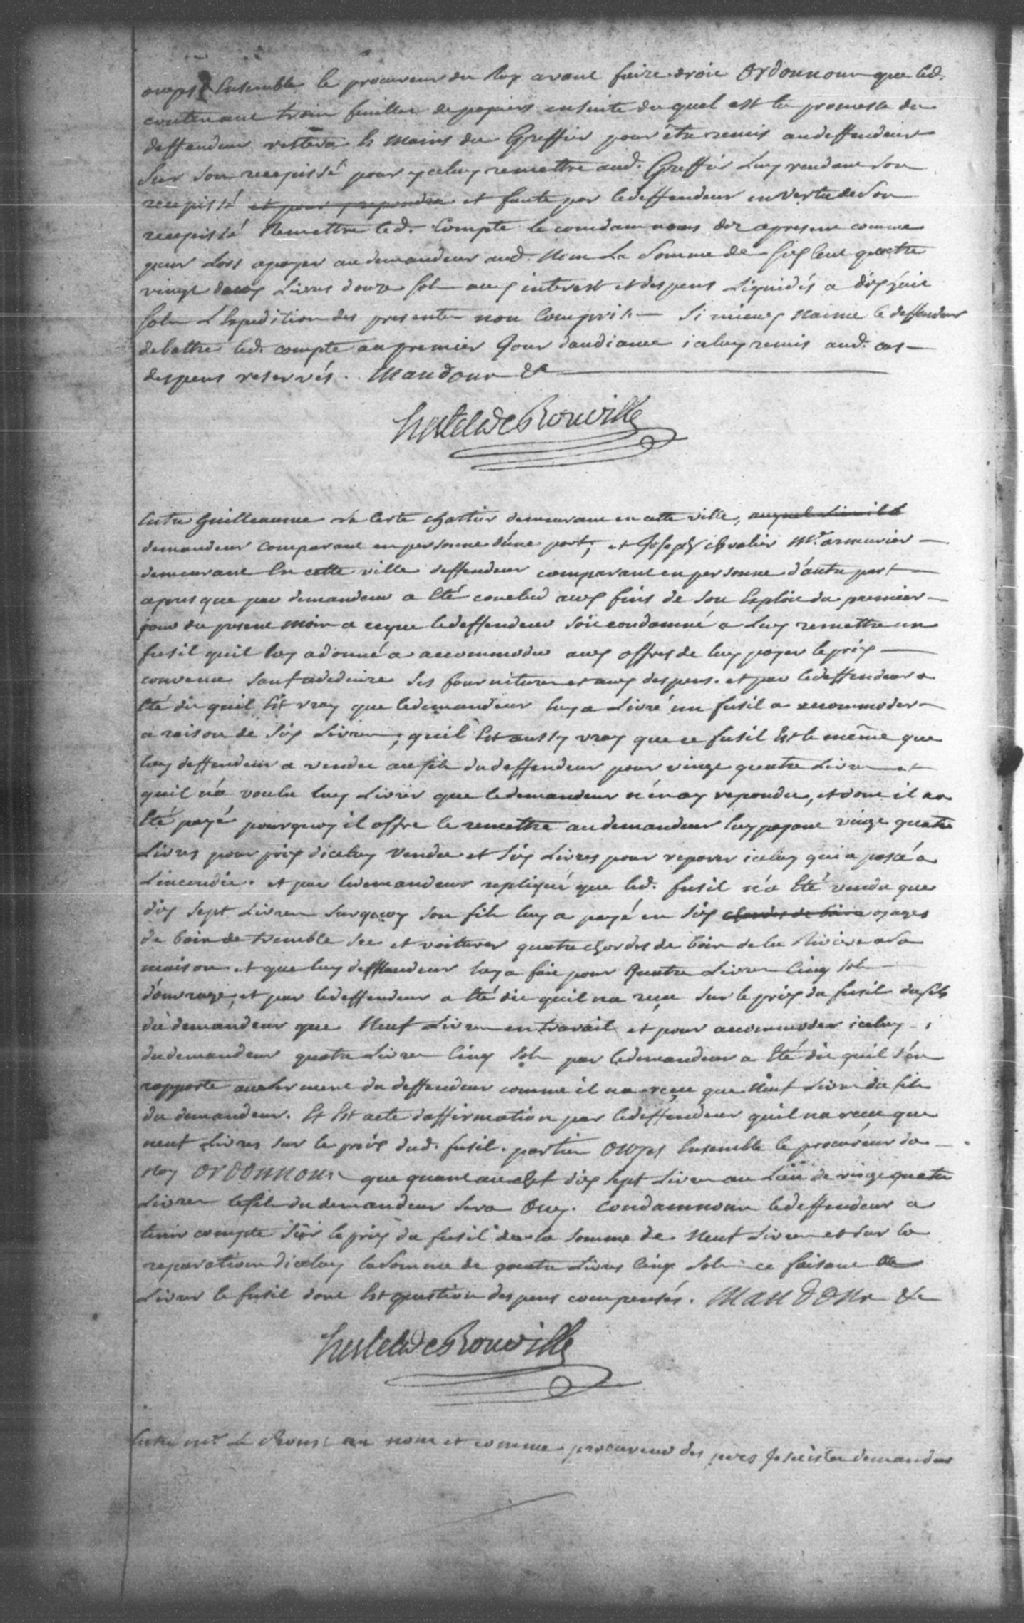 ouys Ensemble le procureur du Roy avant faire droit Ordonnons que led.
contenant trois feuilles de papiers ensuite duquel est la promesse du
deffendeur restera es mains du Greffier pour être remis au deffendeur
Sur son recepissé pour yceluy remettre aud. Greffier luy rendant son
recepissé et pour y repondre et faute par le deffendeur en vertu de son
recepissé Remettre led. Compte le condamnons dez apresent comme
pour Lors a payer au demandeur aud. Nom La Somme de Six Cent quatre
vingt deux Livres douze sols aux interest et despens Liquidés a dix huit
sols L'Expedition des presentes non Comprise Si mieux n'aime le deffendeur
debattre led. compte au premier Jour d'audiance iceluy remis aud. cas
despens reservés. Mandons &c
hertel de Rouville
Entre Guilleaume de Leste chartier demeurant en cette ville,
demandeur comparant en personne d'une part, et Joseph chevalier Me. armurier
demeurant En cette ville deffendeur comparant en personne d'autre part
apres que par demandeur a Eté conclud aux fins de son Exploit du premier
jour du present mois a ce que le deffendeur soit condamné a luy remettre un
fusil quil luy a donné a accommoder aux offres de luy payer le prix
convenu sauf a deduire ses fournitures et aux despens. et par le deffendeur a
Eté dit quil Est vray que le demandeur luy a Livré un fusil a accommoder
a raison de Six Livres, quil Est aussy vray que ce fusil Est le même que
luy deffendeur a vendu au fils du deffendeur pour vingt quatre Livres et
quil n'a voulu luy Livrer que le demandeur n'en ay repondu, et dont il na
Eté payé pourquoy il offre le remettre au demandeur luy payant vingt quatre
Livres pour prix diceluy vendu et Six Livres pour reparer iceluy qui a passé a
L'incendie. et par le demandeur repliqué que led. fusil n'a Eté vendu que
dix sept Livres surquoy son fils luy a payé en six chordes de bois
de bois de tremble sec et voiturer quatre chordes de bois de la Riviere a la
maison. et que luy deffendeur luy a fait pour Quatre Livres Cinq sols
d'ouvrage, et par le deffendeur a Eté dit quil na reçu sur le prix du fusil du fils
du demandeur que Neuf Livres en travail et pour accommoder iceluy
du demandeur quatre Livres Cinq sols par le demandeur a Eté dit quil s'en
rapporte au serment du deffendeur comme il na receu que Neuf Livres du fils
du demandeur. Et Est acte d'affirmation par le deffendeur quil na receu que
neuf Livres sur le prix dud. fusil. parties Ouyes Ensemble le procureur du
Roy Ordonnons que quant aux dix sept Livres au Lieu de vingt quatre
Livres le fils du demandeur sera Ouy. Condamnons le deffendeur a
tenir compte sur le prix du fusil de la somme de Neuf Livres et sur la
reparation diceluy la somme de quatre Livres Cinq sols ce faisant
Livrer le fusil dont Est question despens compensés. Mandons &c
hertel de Rouville
Entre Me. au nom et comme procureur des peres Jesuistes demandeur